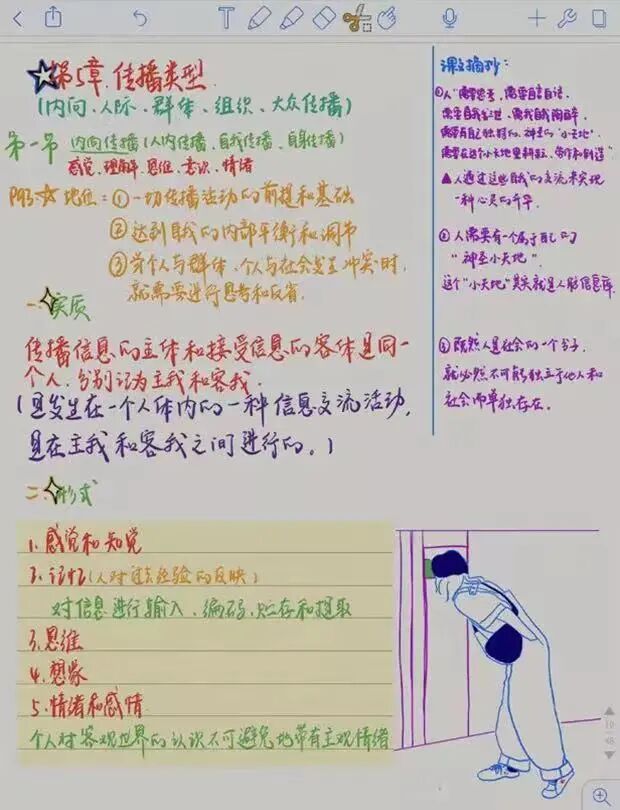 第5章 传播类型
(内向、人际、群体、组织、大众传播)
第一节 内向传播(人内传播、自我传播、自身传播)
感觉、理解、思维、意识、情绪
地位:①一切传播活动的前提和基础
②达到自我的内部平衡和调节
③当个人与群体、个人与社会发生冲突时,
就需要进行思考和反省.
一 实质
传播信息的主体和接受信息的客体是同一
个人,分别记为主我和客我.
(是发生在一个人体内的一种信息交流活动,
是在主我和客我之间进行的。)
二 形式
1.感觉和知觉
2.记忆(人对过去经验的反映)
对信息进行输入、编码、贮存和提取
3.思维
4.想象
5.情绪和感情
个人对客观世界的认识不可避免地带有主观情绪
课文摘抄:
①人"需要思考,需要自言自语,
需要自我陶醉,
需要有自己独特的、神圣的"小天地",
需要在这个小天地里耕耘、劳作和创造"
▲人通过这些自我的交流来实现
一种心灵的升华.
②人需要有一个属于自己的
"神圣小天地".
这个"小天地"其实就是人脑信息库
③既然人是社会的一个分子,
就必然不可能独立于他人和
社会而单独存在.